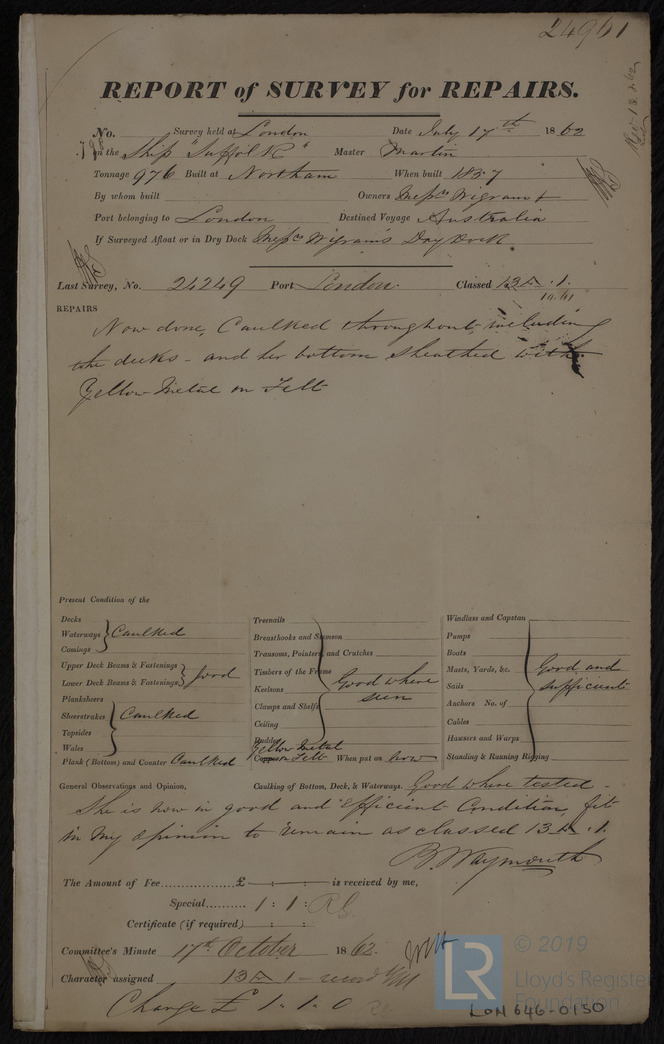 24961
REPORT of SURVEY for REPAIRS.
No. Survey held at London Date July 17th 1862
in the Ship "Suffolk" Master Martin
Tonnage 976 Built at Northam When built 1857
By whom built Owners Messrs Wigram &
Port belonging to London Destined Voyage Australia
If Surveyed Afloat or in Dry Dock Messrs Wigram's Dry Dock.
Last Survey, No. 24249 Port London. Classed 13 A .1.
10.61
REPAIRS
Now done, Caulked throughout, including
the decks - and her bottom sheathed with
Yellow Metal on Felt
Present Condition of the
Decks
Waterways Caulked
Comings
Upper Deck Beams & Fastenings
Lower Deck Beams & Fastenings Good
Planksheers
Sheerstrakes Caulked
Topsides
Wales
Plank (Bottom) and Counter Caulked
Treenails
Breasthooks and Stemson
Transoms, Pointers, and Crutches
Timbers of the Frame Good where
Keelsons seen
Clamps and Shelfs
Ceiling
Rudder
Yellow Metal
Copper on Felt When put on now
Windlass and Capstan
Pumps
Boats
Masts, Yards, &c. Good and
Sails sufficient
Anchors No. of
Cables
Hawsers and Warps
Standing & Running Rigging
General Observations and Opinion, Caulking of Bottom, Deck, & Waterways. Good where tested -
She is now in good and Efficient Condition, fit
in my opinion to remain as classed 13 A .1.
B. Waymouth
The Amount of Fee............... £ : : is received by me,
Special.......... 1 : 1 :
Certificate (if required) : :
Committee's Minute 17th October 1862.
Character assigned 13 A 1 -
Charge £ 1. 1. 0
LR
© 2019
Lloyd's Register
Foundation
LON 646-0150